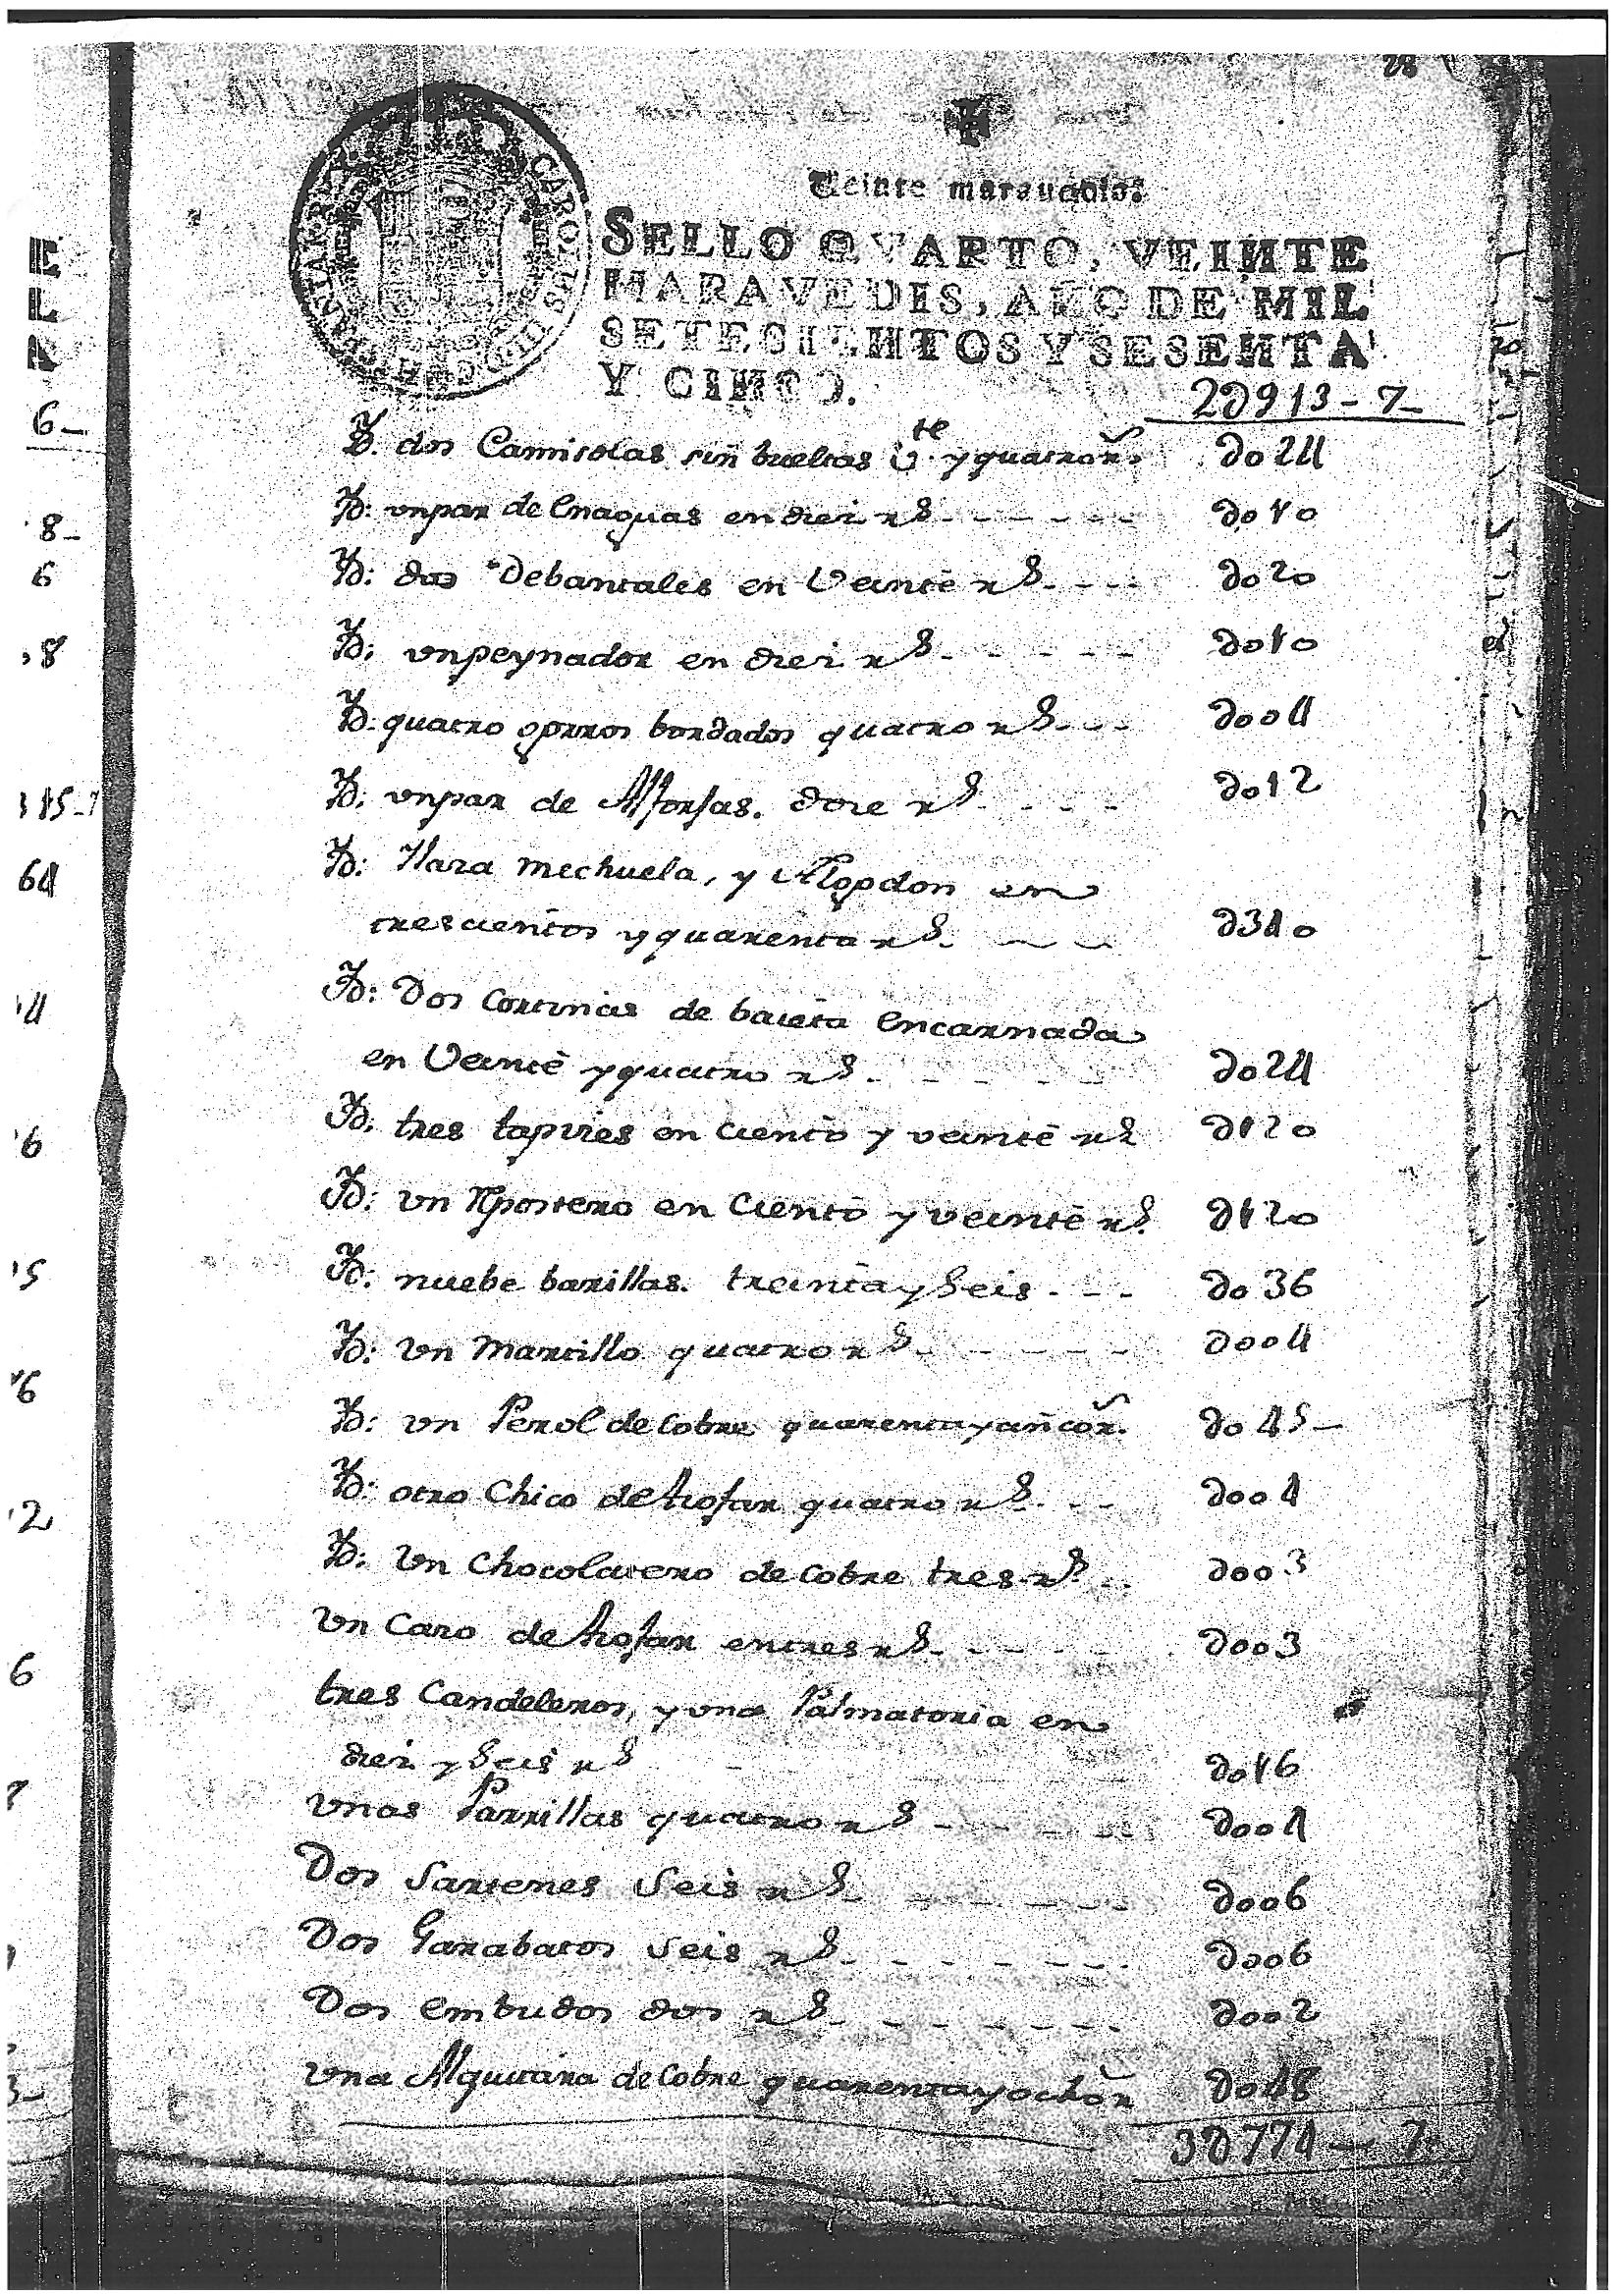 28
Veinte marauedis.
SELLO QVARTO, VEINTE
MARAVEDIS, AÑO DE MIL
SETECIENTOS Y SESENTA
Y CINCO.
CAROLUS III D G HISPANIAR REX
2D913-7-
YD. dos Camisolas sin bueltas V.te y quatro r.s D024
YD: vn par de Enaguas en diez r.s D010
YD: dos Debantales en Veinte r.s D020
YD: vn peynador en diez r.s D010
YD: quatro gorros bordados quatro r.s D004
YD: vn par de Alforjas. doze r.s D012
YD: Ilaza mechuela, y Algodon en
trescientos y quarenta r.s D340
YD: Dos Cortinas de baieta encarnada
en Veinte y quatro r.s D024
YD: tres tapizes en ciento y veinte r.s D120
YD: vn Rpostero en Ciento y veinte r.s D120
YD: nuebe barillas. treinta y Seis D036
YD: Vn Martillo quatro r.s D004
YD: vn Perol de Cobre quarenta y cinco r. D045-
YD: otro Chico de Azofar quatro r.s D004
YD: Vn Chocolatero de Cobre tres r.s D003
Vn Cazo de Azofar en tres r.s D003
tres Candeleros, y vna Palmatoria en
diez y Seis r.s D016
Vnas Parrillas quatro r.s D004
Dos Sartenes Seis r.s D006
Dos Garabatos Seis r.s D006
Dos Embudos dos r.s D002
Vna Alquitara de Cobre quarenta y ocho r D048
3D774-7
E
L
6-
8-
6
8
315-7
64
4
6
5
6
2
6